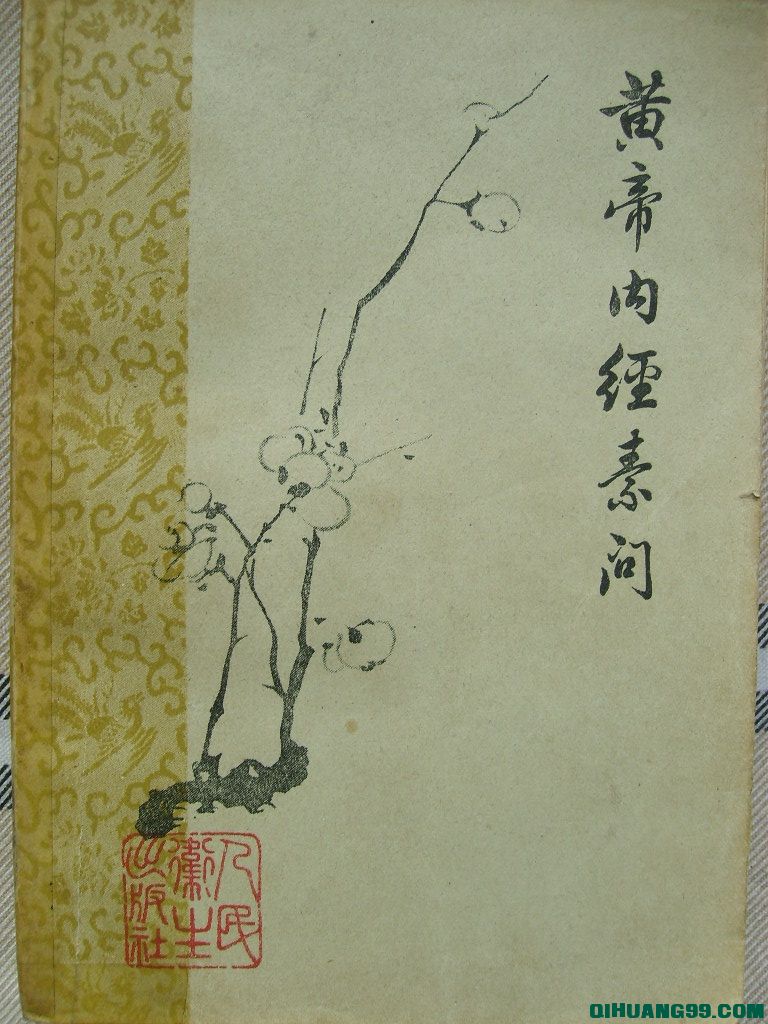 黄帝内經素问
人民
衞生
出版社
QIHUANG99.COM